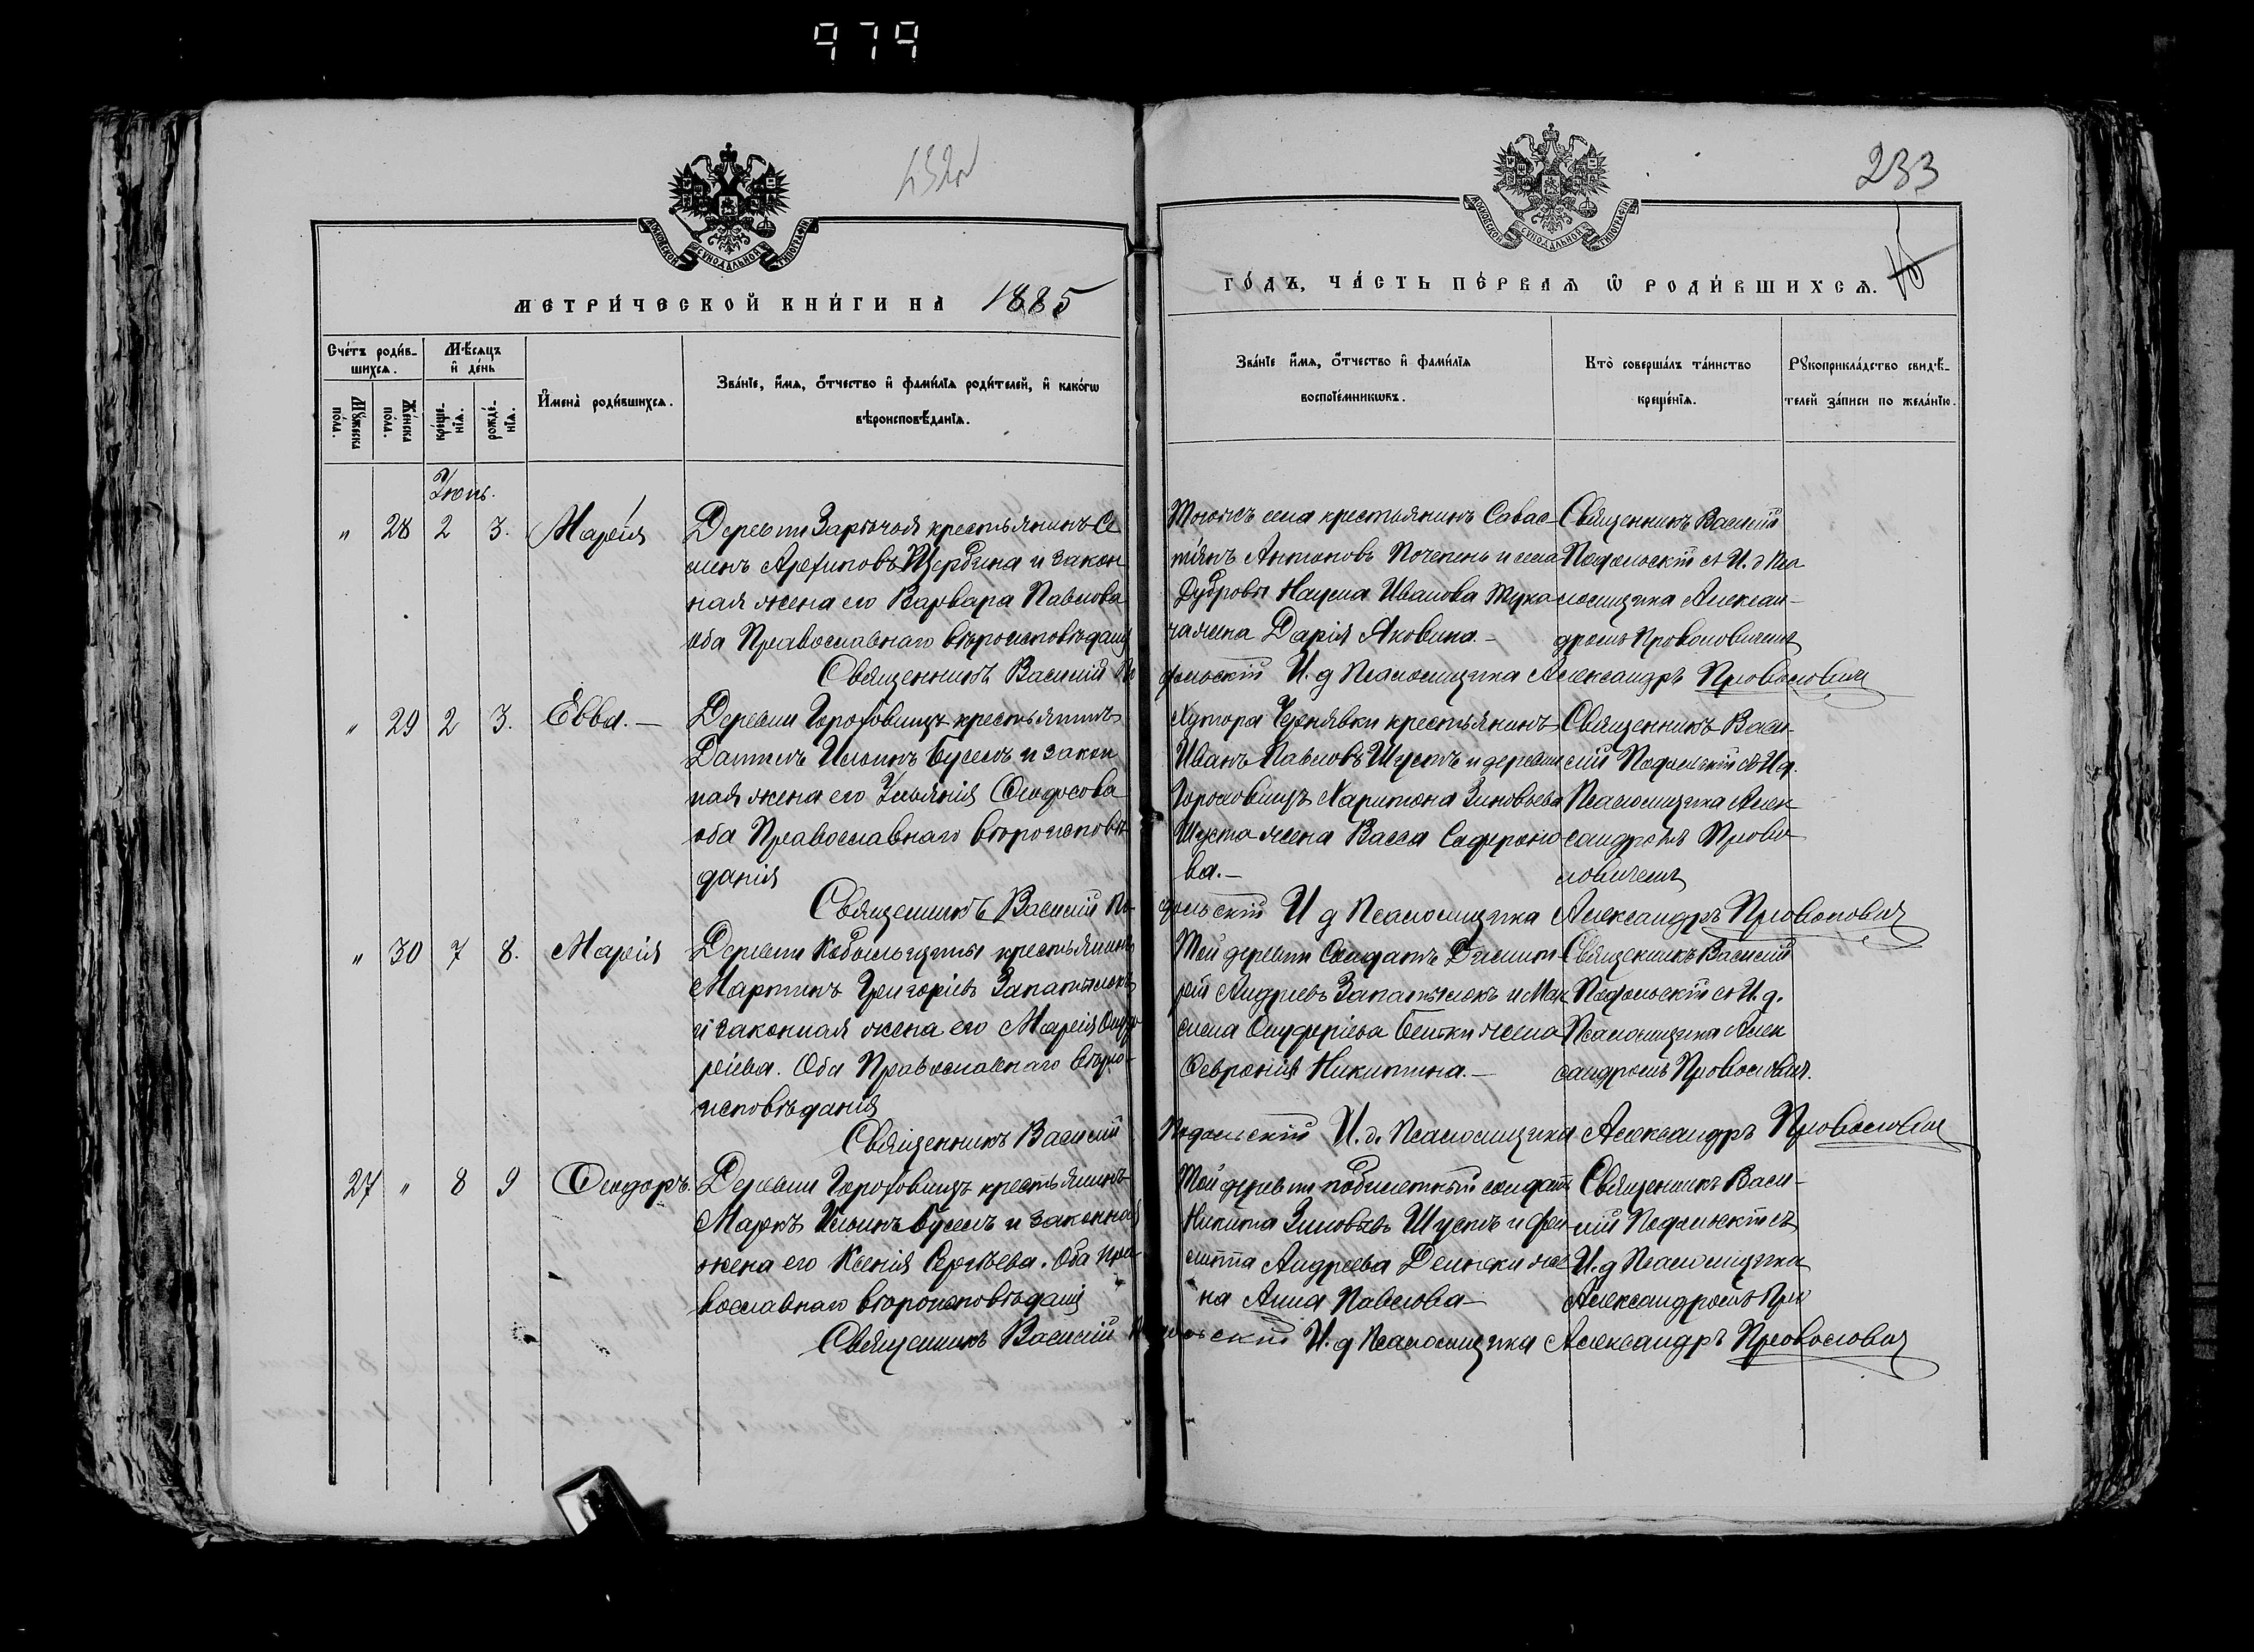 979
233
МОСКОВСКОЙ СѴНОДАЛЬНОЙ ТИПОГРАФІИ
МОСКОВСКОЙ СѴНОДАЛЬНОЙ ТИПОГРАФІИ
МЕТРИ́ЧЕСКОЙ КНИ́ГИ НА 1885
ГО́ДЪ, ЧА́СТЬ ПЕ́РВАѦ Ѡ҆ РОДИ́ВШИХСѦ.
Сче́тъ роди́в-
шихсѧ.
Мѣ́сѧцъ
и҆ де́нь
Мꙋ́жеска
по́ла.
Же́нска
по́ла.
креще́-
нїѧ.
рожде́-
нїѧ.
И҆мена̀ роди́вшихсѧ.
Зва́нїе, и҆́мѧ, ѻ҆́тчество и҆ фами́лїѧ роди́телей, и҆ како́гѡ
вѣроисповѣ́данїѧ.
Зва́нїе и҆́мѧ, ѻ҆́тчество и҆ фами́лїѧ
воспрїе́мникѡвъ.
Кто̀ соверша́лъ та́инство
креще́нїѧ.
Рꙋкоприкла́дство свидѣ́-
телей за́писи по жела́нїю.
Іюнь.
" 28 2 3. Марія
Деревни Заречья крестьянинъ Се
менъ Архиповъ Щербина и закон
ная жена его Варвара Павлова
оба Православнаго вѣроисповѣданія
Тогожъ села крестьянинъ Савас-
тіянъ Антоновъ Почепень и села
Дубровы Наума Иванова
жена Дарія Яковина.-
Священникъ Василій
Подольскій съ И. д Пса
ломщика Алексан-
дромъ Проволовичемъ
Священникъ Василій Подольскій И. д Псаломщика Александръ Проволовичъ
" 29 2 3. Евва.-
Деревни Гороховищъ крестьянинъ
Даниилъ Ильинъ Буселъ и закон
ная жена его Ульянія Ѳеодосова
оба Православнаго вѣроисповѣ-
данія
Хутора Чернявки крестьянинъ
Иванъ Павловъ Шустъ и деревни
Гороховищъ Харитона Зиновьева
Шуста жена Васса Софроно
ва.-
Священникъ Васи-
лій Подольскій съ И д.
Псаломщика Алек
сандромъ Прово
ловичемъ
Священникъ Василій Подольскій И д Псаломщика Александръ Проволовичъ
" 30 7 8. Марія
Деревни Кобыльщины крестьянинъ
Мартинъ Григорьевъ Запатылокъ
и законная жена его Марія Онуф
ріева. Оба Православнаго вѣро-
исповѣданія
Той деревни Солдатъ Димит
рій Андреевъ Запатылокъ и Мак
сима Онуфріева жена
Ѳевронія Никитина.-
Священникъ Василій
Подольскій съ И. д.
Псаломщика Алек
сандромъ Проволович.
Священникъ Василій Подольскій И. д. Псаломщика Александръ Проволовичъ
27 " 8 9 Ѳеодоръ.
Деревни Гороховищъ крестьянинъ
Маркъ Ильинъ Буселъ и законная
жена его Ксенія Сергѣева. Оба Пра-
вославнаго вѣроисповѣданія
Той деревни побилетный солдатъ
Никита Зиновьевъ Шустъ и Фи
липпа Андреева же
на Анна Павлова-
Священникъ Васи-
лій Подольскій съ
И. д Псаломщика
Александромъ Про
Священникъ Василій Подольскій И. д Псаломщика Александръ Проволовичъ